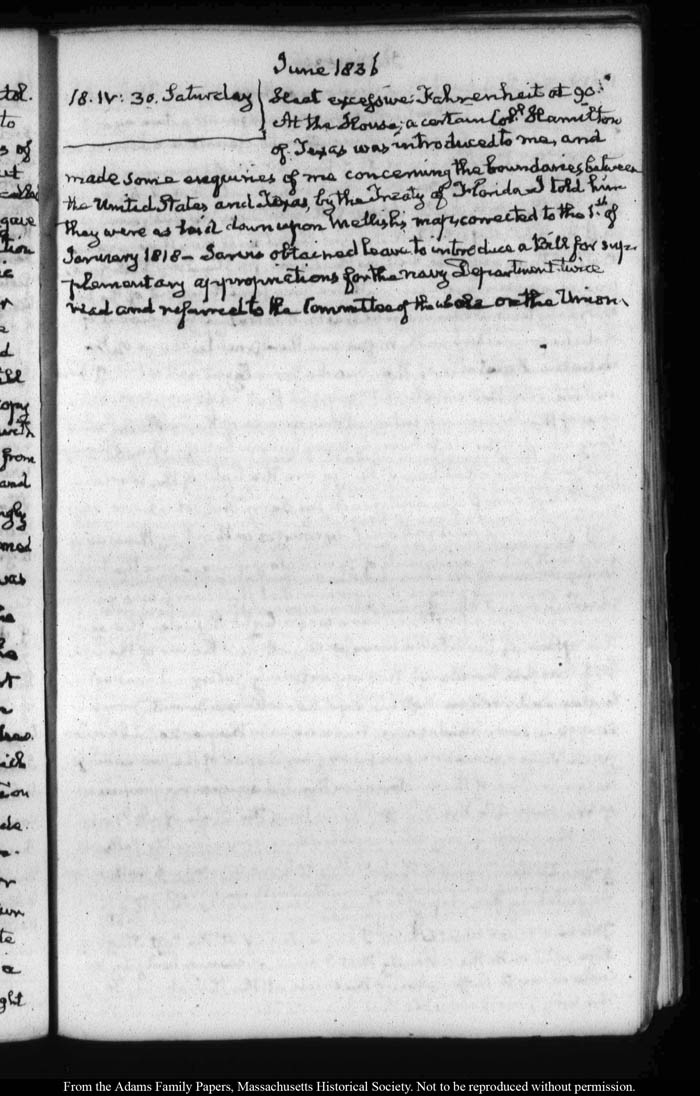 June 1836
18. IV: 30. Saturday
Heat excessive: Fahrenheit at 90.
At the House; a certain Col.l Hamilton
of Texas was introduced to me, and
made some enquiries of me concerning the boundaries between
the United States and Texas, by the Treaty of Florida. I told him
they were as laid down upon Mellish's map, corrected to the 1.st of
January 1818 – Jarvis obtained leave to introduce a Bill for sup-
plementary appropriations for the navy Department twice
read and referred to the Committee of the whole on the Union.
tol.
to
s of
gave
tion
r
d
ill
copy
with
from
and
ngly
med
was
he
ich
ion
te
a
ght
From the Adams Family Papers, Massachusetts Historical Society. Not to be reproduced without permission.